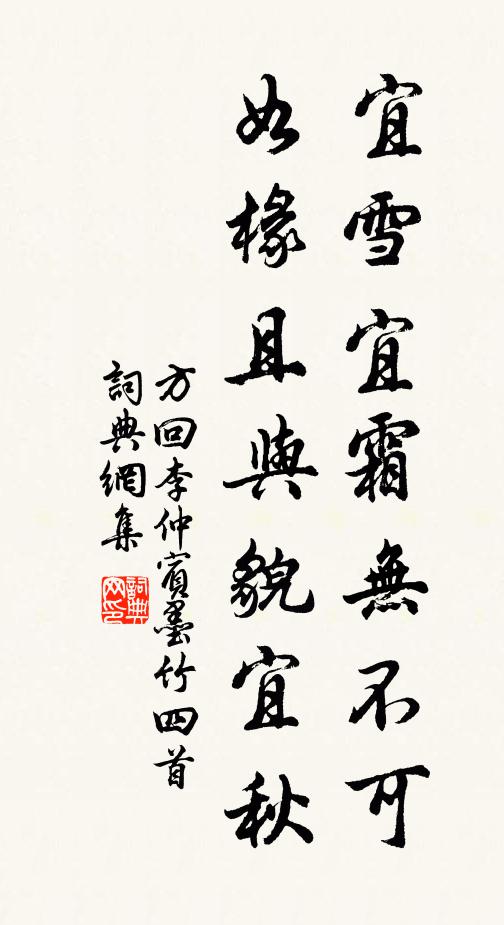 宜雪宜霜無不可
如椽且與貌宜秋
方回李仲賓墨竹四首
詞典網集
詞典网印